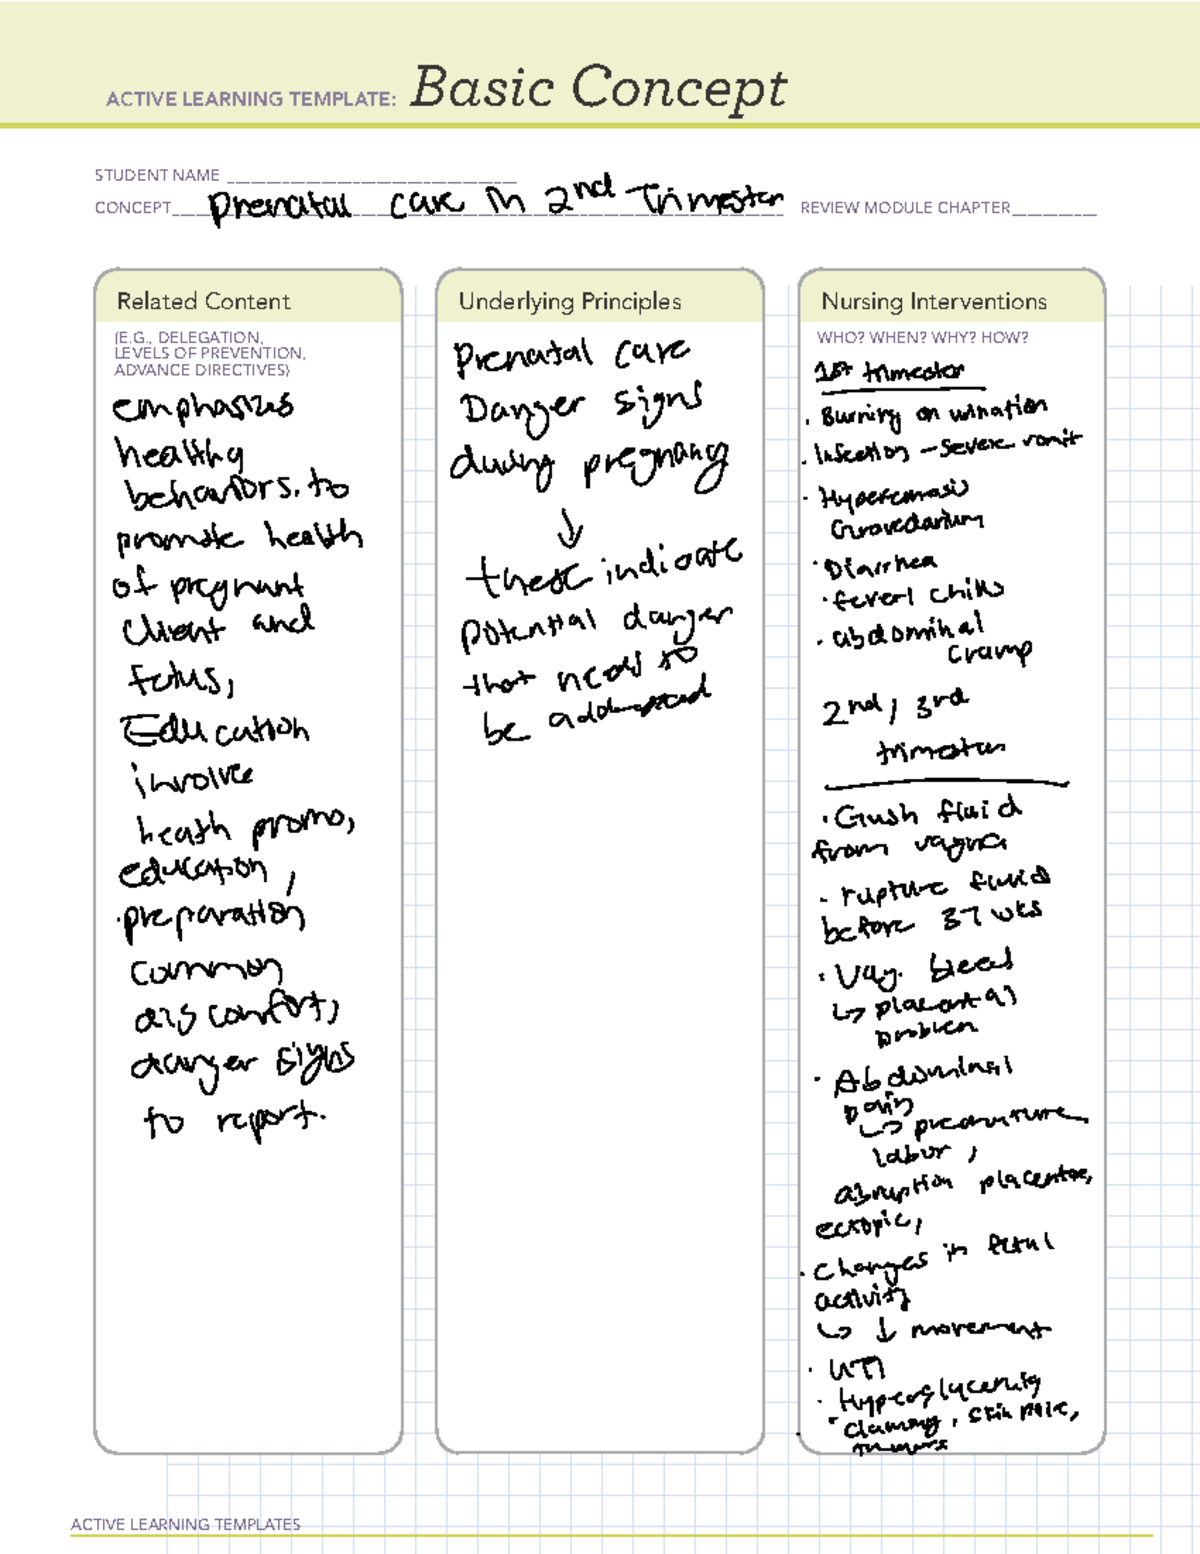 ACTIVE LEARNING TEMPLATE: Basic Concept
STUDENT NAME
CONCEPT Prenatal care in 2nd Trimester REVIEW MODULE CHAPTER
Related Content
(E.G., DELEGATION,
LEVELS OF PREVENTION,
ADVANCE DIRECTIVES)
emphasizes
healthy
behaviors. to
promote health
of pregnant
Client and
fetus,
Education
involve
heath promo,
education,
preparation
common
discomfort,
danger signs
to report.
Underlying Principles
Prenatal care
Danger signs
during pregnancy
↓
these indicate
potential danger
that need to
be addressed
Nursing Interventions
WHO? WHEN? WHY? HOW?
1st trimester
· Burning on urination
· Infection - severe vomit
· Hyperemesis
Gravedarium
· Diarrhea
· fever/ chills
· abdominal
cramp
2nd, 3rd
trimester
· Gush fluid
from vagina
· rupture fluid
before 37 wks
· Vag. bleed
↳ placental
problem
· Abdominal
pain
↳ premature
labor,
abruption placentae,
ectopic,
· changes in fetal
activity
↳ ↓ movement
· UTI
· Hyperglycemia
· clammy, skin pale,
tremors
ACTIVE LEARNING TEMPLATES